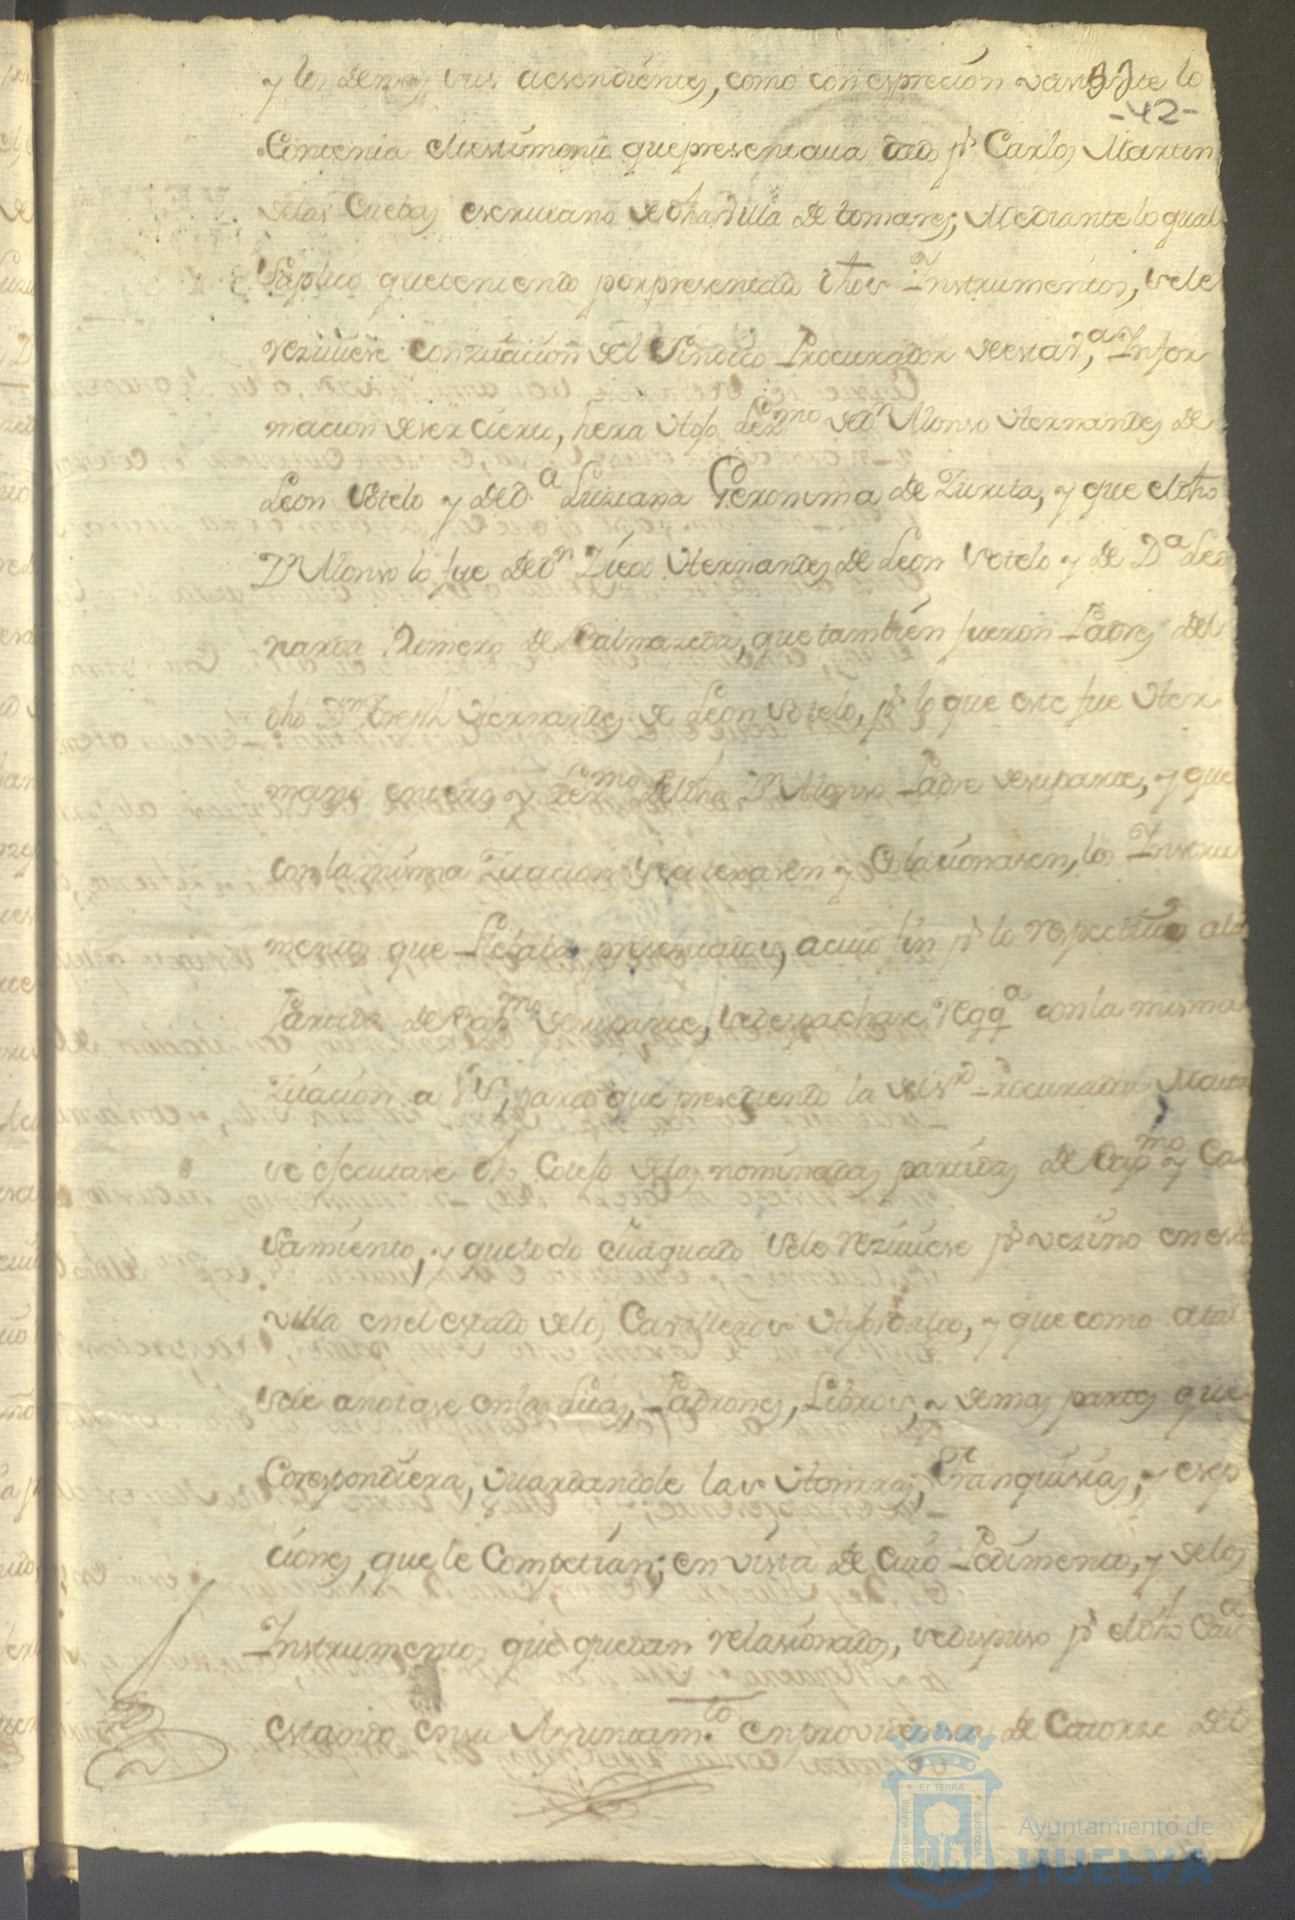 y los demas sus acsendientes, como con espreción vastante lo
-42-
Contenia el testimonio que presentava dado pr Carlos Martin
de las Cuebas escrivano de dha villa de tomares; Mediante lo qual
Suplico que teniendo por presentado dhos Instrumentos, sele
rezivese con zitacion del Sindico Procurador de esta va, Infor
macion de ser cierto, hera Hijo Lexmo de Dn Alonso Hernandes de
Leon Sotelo y de Da Luziana Geronima de Zurita, y que el dho
Dn Alonso lo fue de Dn Diego Hernandes de Leon Sotelo y de Da Leo
narda Romero de Balmazeda, que tambien fueron Padres del
dho Dn Joseph Hernandes de Leon Sotelo, pr lo que este fue Her
mano entero y Lexmo del dho Dn Alonso Padre de su parte, y que
con la misma Zitacion se coterasen y Colacionasen, los Instru
mentos que Llebaba presentados, a cuio fin pr lo respectivo a la
Partida de Bapmo de su parte, se despachase Requa con la misma
Zitacion a para que presediendo la del Sr Procurador Maior
se efecutase dho Cotejo de las nominadas partidas de Bapmo y Ca
samiento, y que todo evaquado sele rezivese pr vezino en esta
villa en el estado de los Cavalleros Hijosdalgo, y que como a tal
sele anotase en las Listas, Padrones, Libros, y demas partes que
Corespondiera, Guardandole las Honrras, Franquisias, y esep
ciones, que le Competian; en vista de Cuio Pedimento, y de los
Instrumentos que quedan relasionados, se dispuso pr el dho Cavdo
estando en su Ayuntamto en providensia de Catorse de
Ayuntamiento de
HUELVA